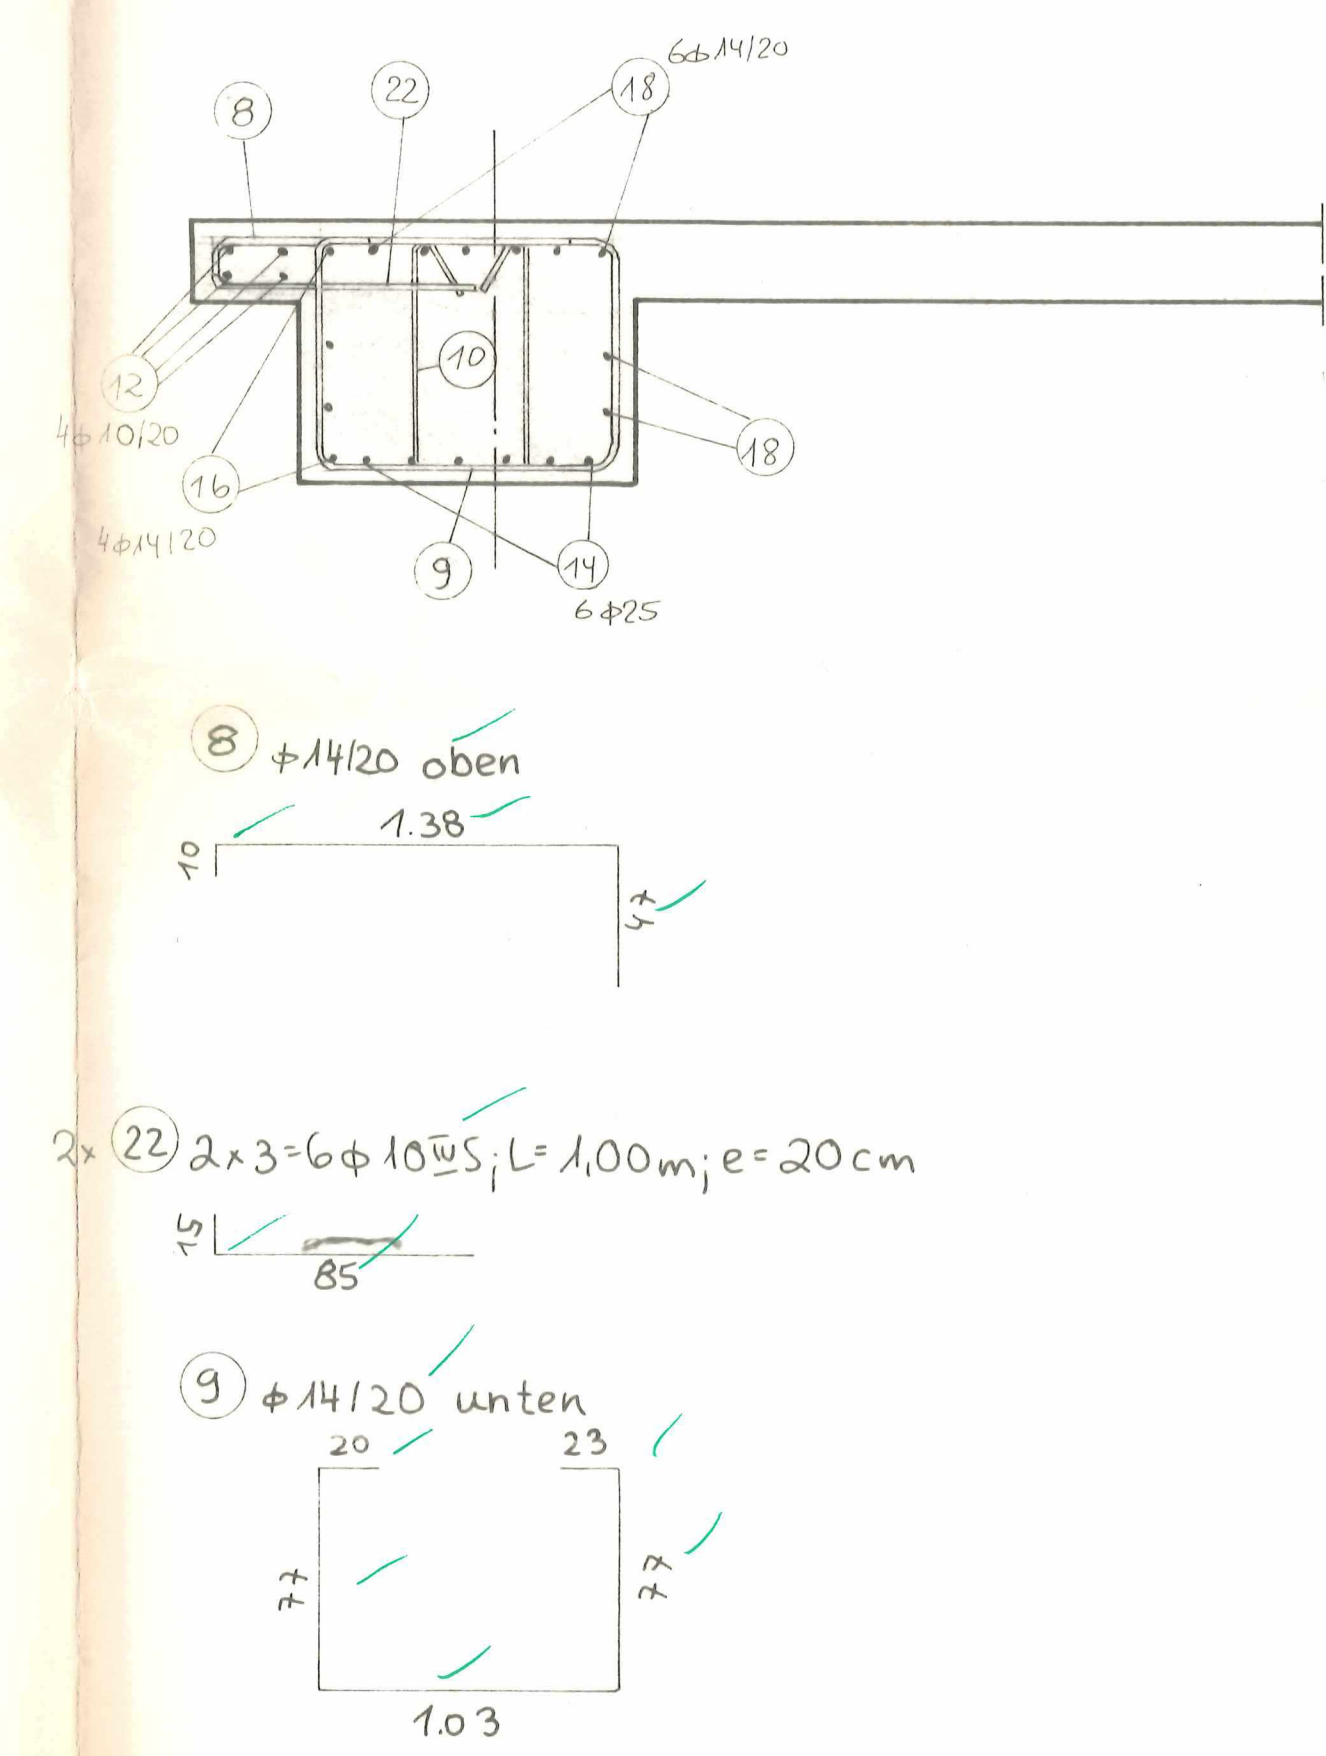 6ϕ14/20
8
22
18
12
10
4ϕ10/20
18
16
4ϕ14/20
9
14
6ϕ25
8 ϕ14/20 oben
1.38
10
47
2x 22 2x3=6ϕ10IVS; L=1,00m; e=20cm
15
85
9 ϕ14/20 unten
20
23
77
77
1.03